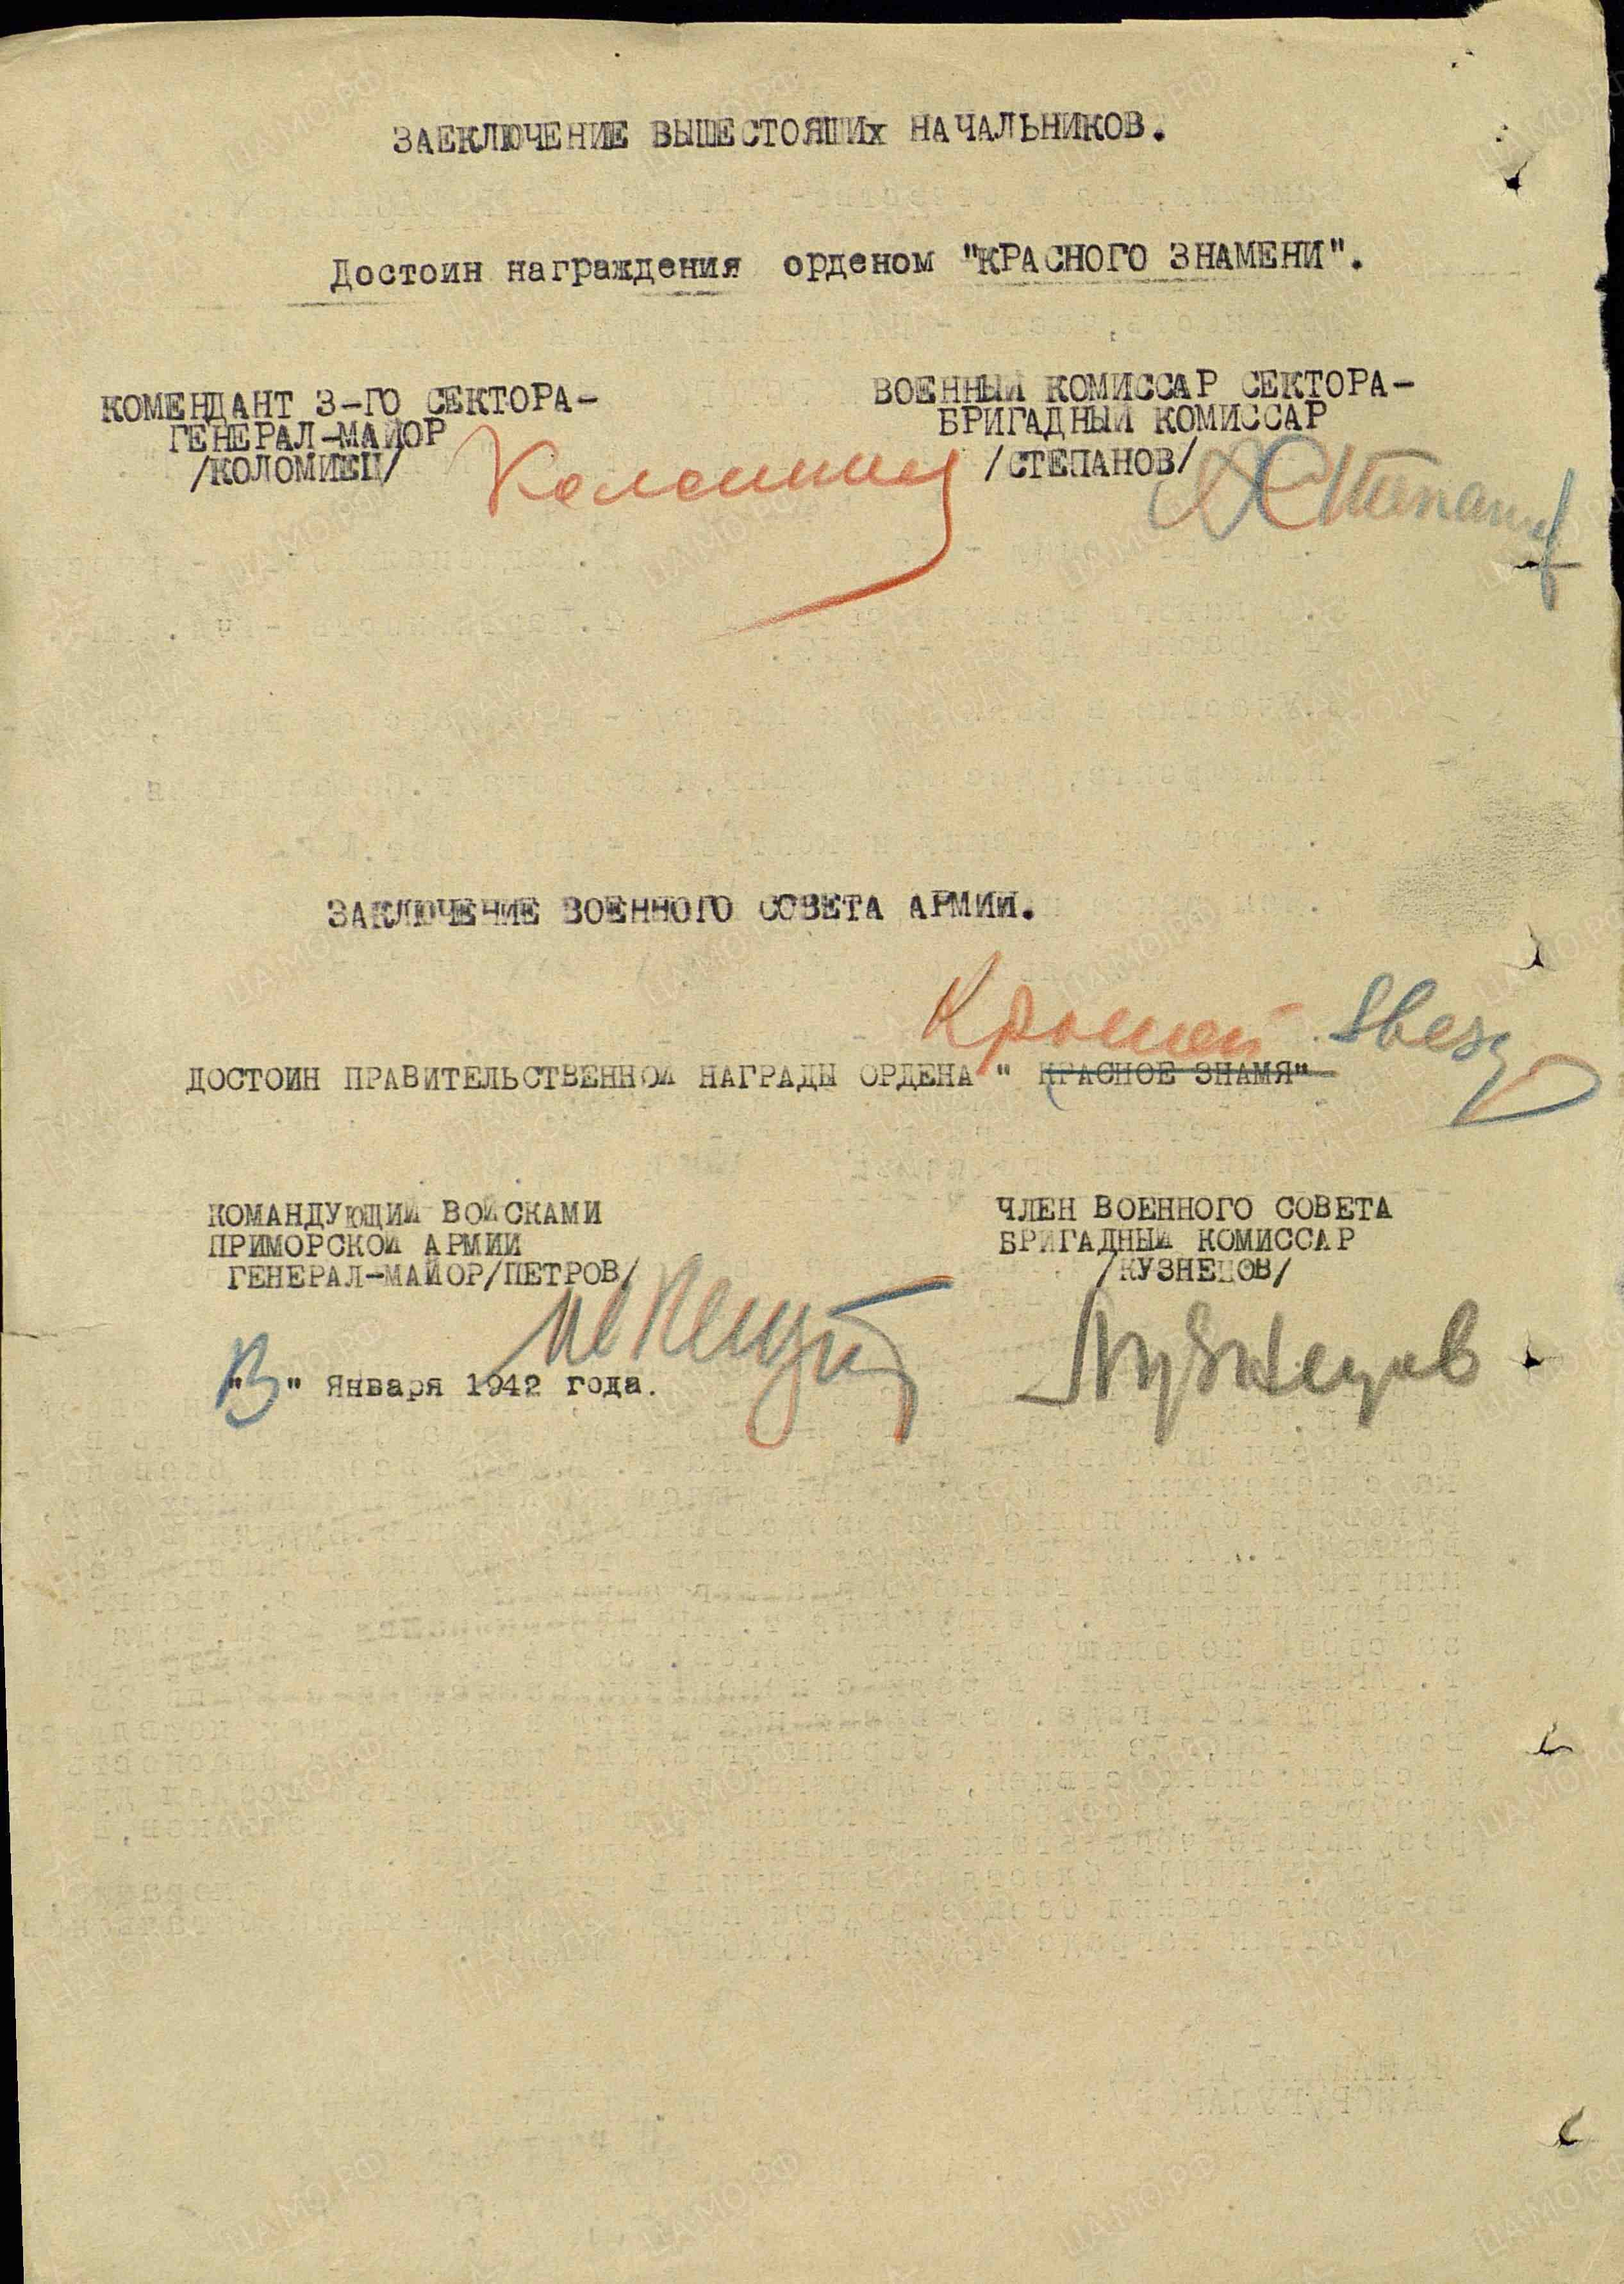 ЗАЕКЛЮЧЕНИЕ ВЫШЕСТОЯЩИХ НАЧАЛЬНИКОВ.
Достоин награждения орденом "КРАСНОГО ЗНАМЕНИ".
КОМЕНДАНТ 3-ГО СЕКТОРА-
ГЕНЕРАЛ-МАЙОР
/КОЛОМИЕЦ/
Коломиец
ВОЕННЫЙ КОМИССАР СЕКТОРА-
БРИГАДНЫЙ КОМИССАР
/СТЕПАНОВ/
Степанов
ЗАКЛЮЧЕНИЕ ВОЕННОГО СОВЕТА АРМИИ.
Красной Звезд
ДОСТОИН ПРАВИТЕЛЬСТВЕННОЙ НАГРАДЫ ОРДЕНА " КРАСНОЕ ЗНАМЯ"
КОМАНДУЮЩИЙ ВОЙСКАМИ
ПРИМОРСКОЙ АРМИИ
ГЕНЕРАЛ-МАЙОР/ПЕТРОВ/
ЧЛЕН ВОЕННОГО СОВЕТА
БРИГАДНЫЙ КОМИССАР
/КУЗНЕЦОВ/
Кузнецов
" " Января 1942 года.